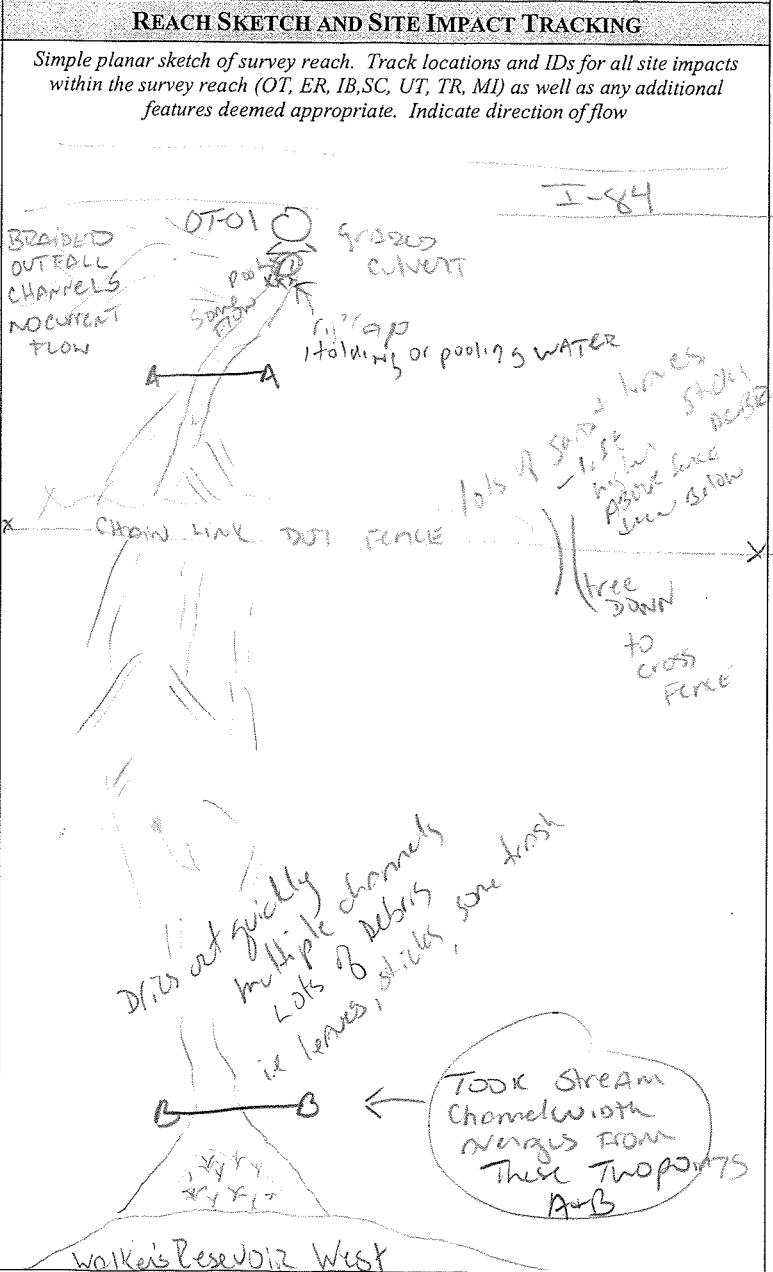 REACH SKETCH AND SITE IMPACT TRACKING
Simple planar sketch of survey reach. Track locations and IDs for all site impacts
within the survey reach (OT, ER, IB,SC, UT, TR, MI) as well as any additional
features deemed appropriate. Indicate direction of flow
I-84
OT-01
BRAIDED
OUTFALL
CHANNELS
NO CURRENT
FLOW
culvert
pool
SOME
FLOW
rip rap
Holding or pooling WATER
A
A
lots of sand + leaves
sticks
higher
ABOVE fence
Below
CHAIN LINK DOT FENCE
tree
DOWN
to
cross
FENCE
Dries out quickly
multiple channels
Lots of Debris
i.e leaves, sticks, some trash
B
B
TOOK STREAM
Channel width
FROM
These Two points
A+B
Walker's Reservoir West